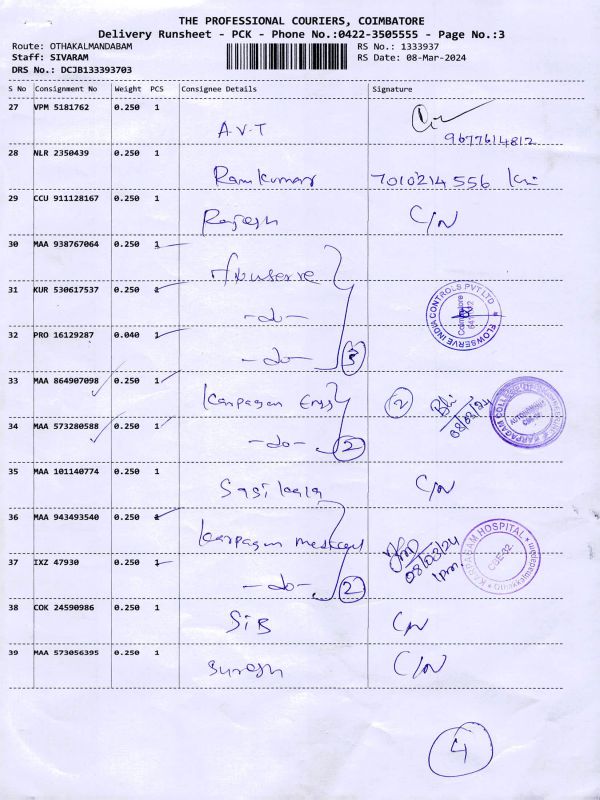 THE PROFESSIONAL COURIERS, COIMBATORE
Delivery Runsheet - PCK - Phone No.:0422-3505555 - Page No.:3
Route: OTHAKALMANDABAM
Staff: SIVARAM
DRS No.: DCJB133393703
RS No.: 1333937
RS Date: 08-Mar-2024
S No Consignment No Weight PCS Consignee Details Signature
27 VPM 5181762 0.250 1 A.V.T 9677614812
28 NLR 2350439 0.250 1 Ramkumar 7010214556
29 CCU 911128167 0.250 1 Rajesh C/N
30 MAA 938767064 0.250 1
31 KUR 530617537 0.250 1 -do-
32 PRO 16129287 0.040 1 -do- 3
FLOWSERVE INDIA CONTROLS PVT LTD
Coimbatore
33 MAA 864907098 0.250 1 Karpagam Engg 2 08/03/24
34 MAA 573280588 0.250 1 -do- 2
35 MAA 101140774 0.250 1 Sasikala C/N
36 MAA 943493540 0.250 1 Karpagam medical 08/03/24
37 IXZ 47930 0.250 1 -do- 2 1pm.
KARPAGAM HOSPITAL
CBE-02.
38 COK 24590986 0.250 1 SIB C/N
39 MAA 573056395 0.250 1 Suresh C/N
4